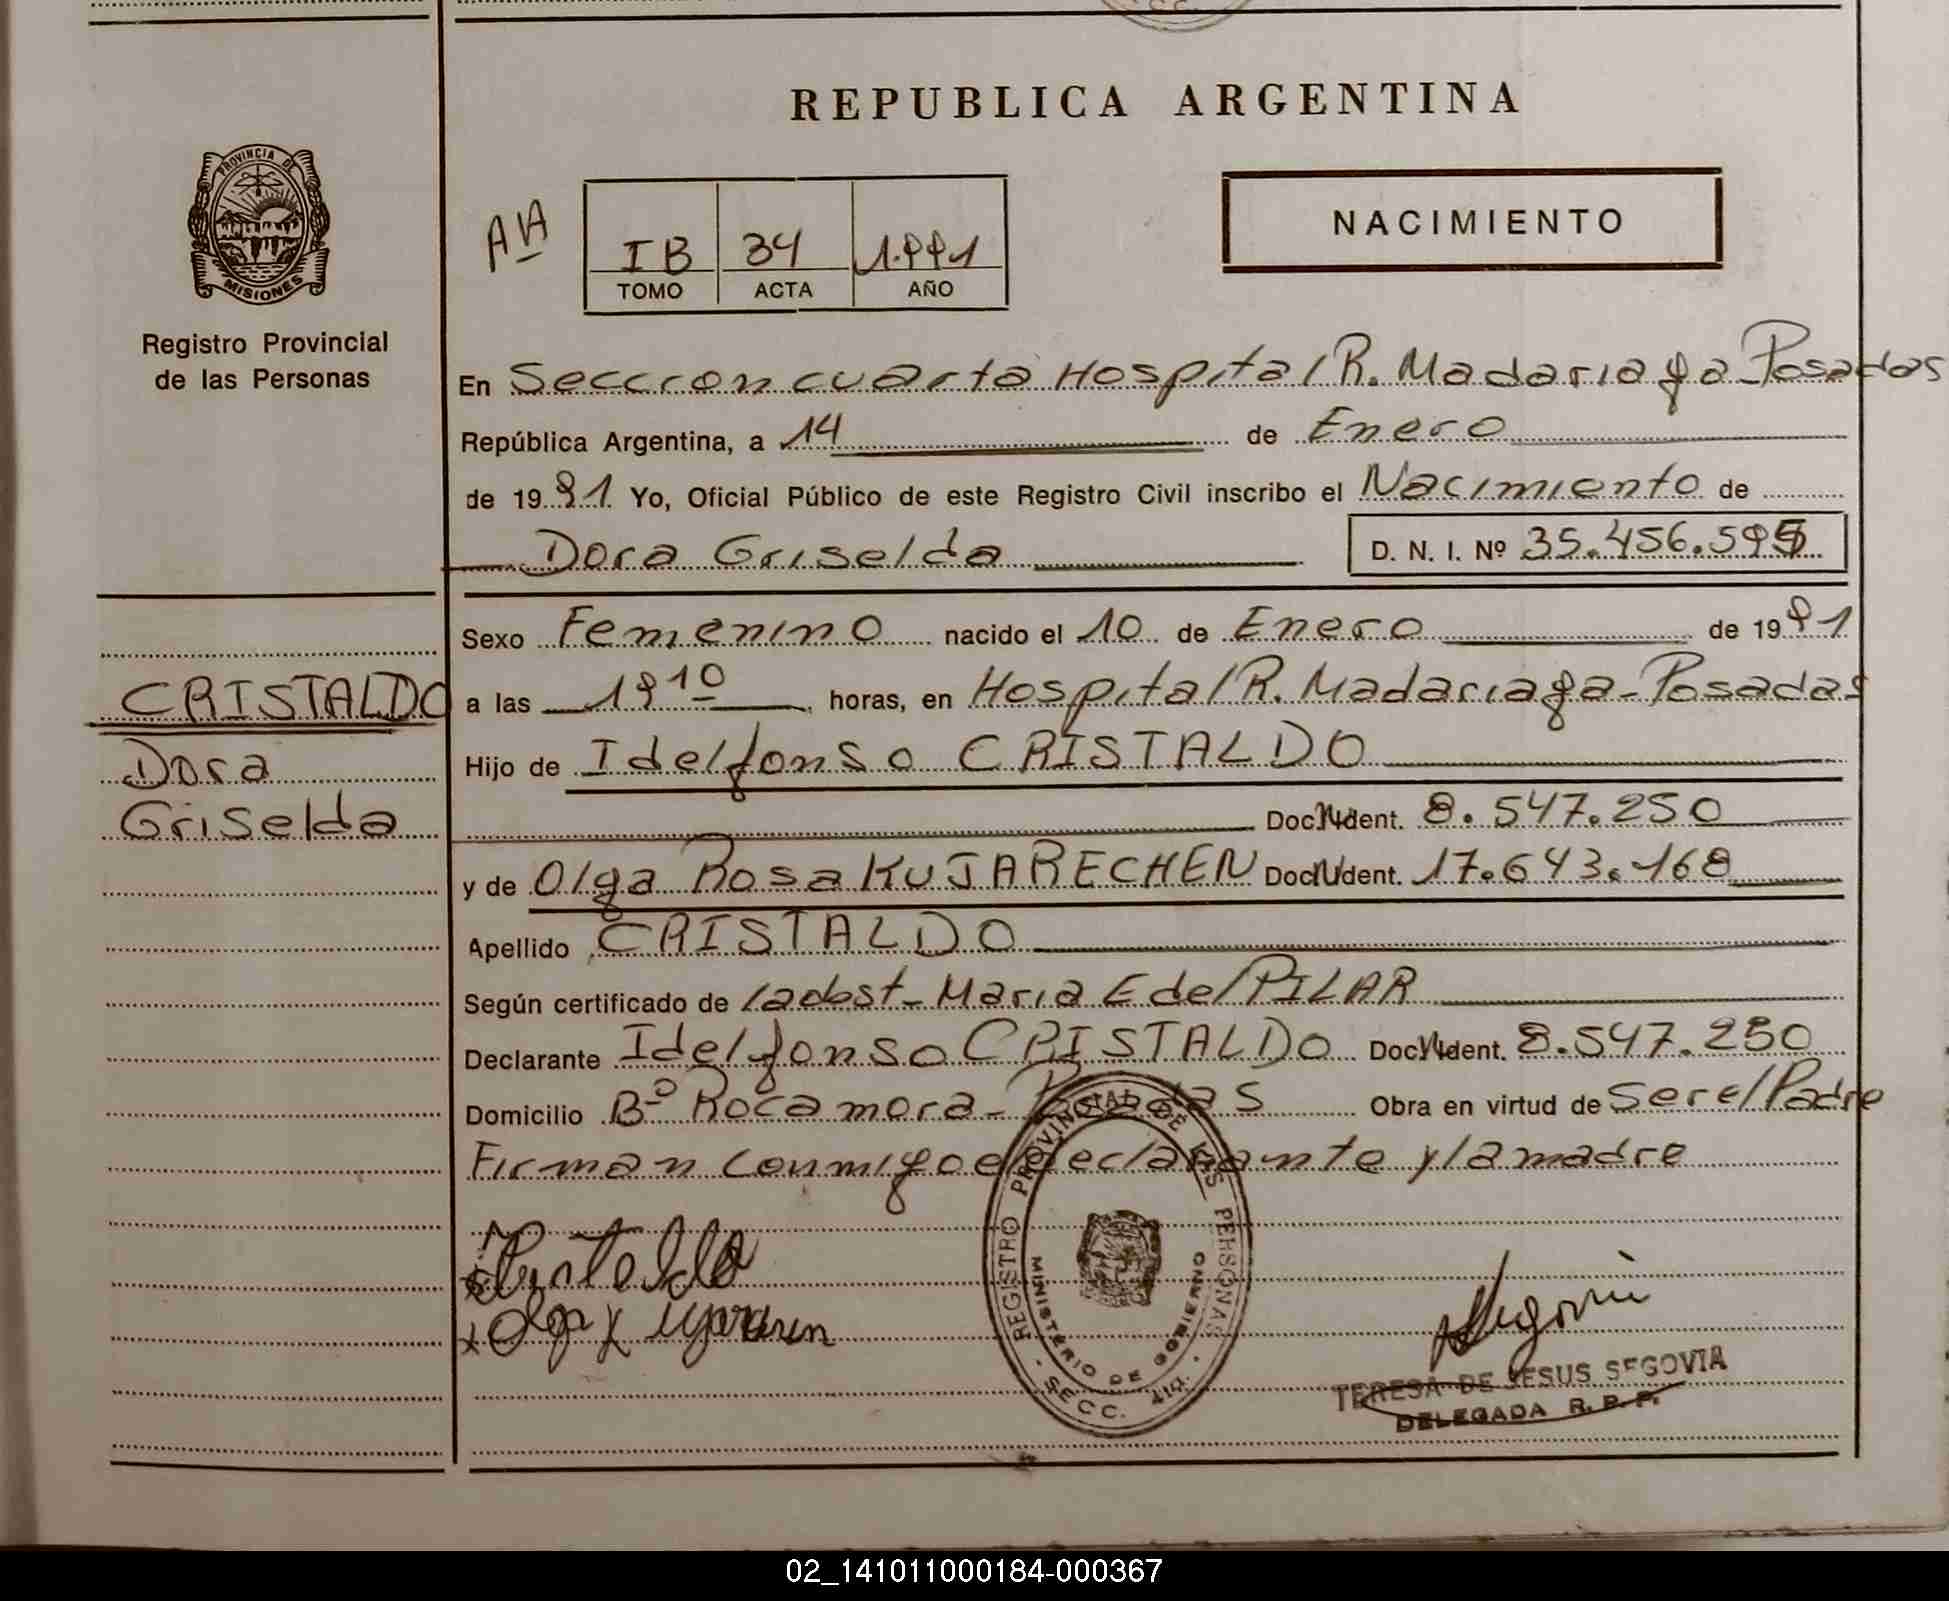 REPUBLICA ARGENTINA
PROVINCIA DE
MISIONES
Registro Provincial
de las Personas
NACIMIENTO
IB 34 1.991
TOMO ACTA AÑO
En Seccion cuarta Hospital R. Madariaga Posadas
República Argentina, a 14 de Enero
de 1991 Yo, Oficial Público de este Registro Civil inscribo el Nacimiento de
Dora Griselda D. N. I. Nº 35.456.595
Sexo Femenino nacido el 10 de Enero de 1991
a las 19 10 horas, en Hospital R. Madariaga - Posadas
Hijo de Idelfonso CRISTALDO
Doc. Ident. 8.547.250
y de Olga Rosa KUJARECHEN Doc. Ident. 17.643.168
Apellido CRISTALDO
Según certificado de la obst - Maria E del PILAR
Declarante Idelfonso CRISTALDO Doc. Ident. 8.547.250
Domicilio Bº Rocamora - Posadas Obra en virtud de Ser el Padre
Firman conmigo el declarante y la madre
CRISTALDO
Dora
Griselda
REGISTRO PROVINCIAL DE LAS PERSONAS
MINISTERIO DE GOBIERNO
SECC. 4ta
TERESA DE JESUS SEGOVIA
DELEGADA R. P. P.
02_141011000184-000367